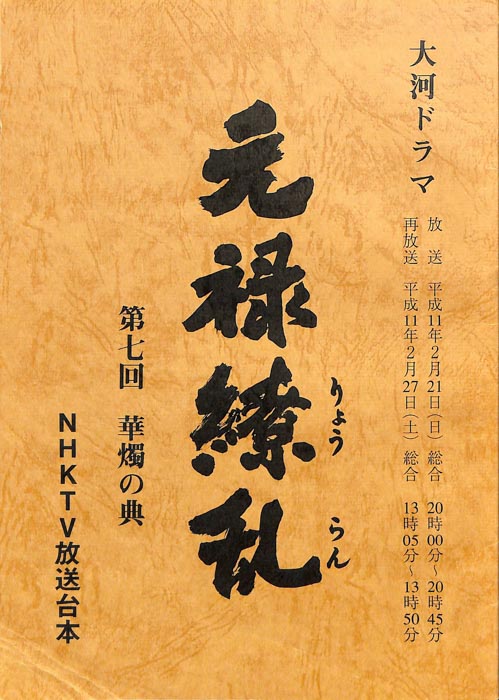 大河ドラマ
放送 平成11年2月21日(日) 総合 20時00分～20時45分
再放送 平成11年2月27日(土) 総合 13時05分～13時50分
元禄繚乱
りょうらん
第七回 華燭の典
NHKTV放送台本